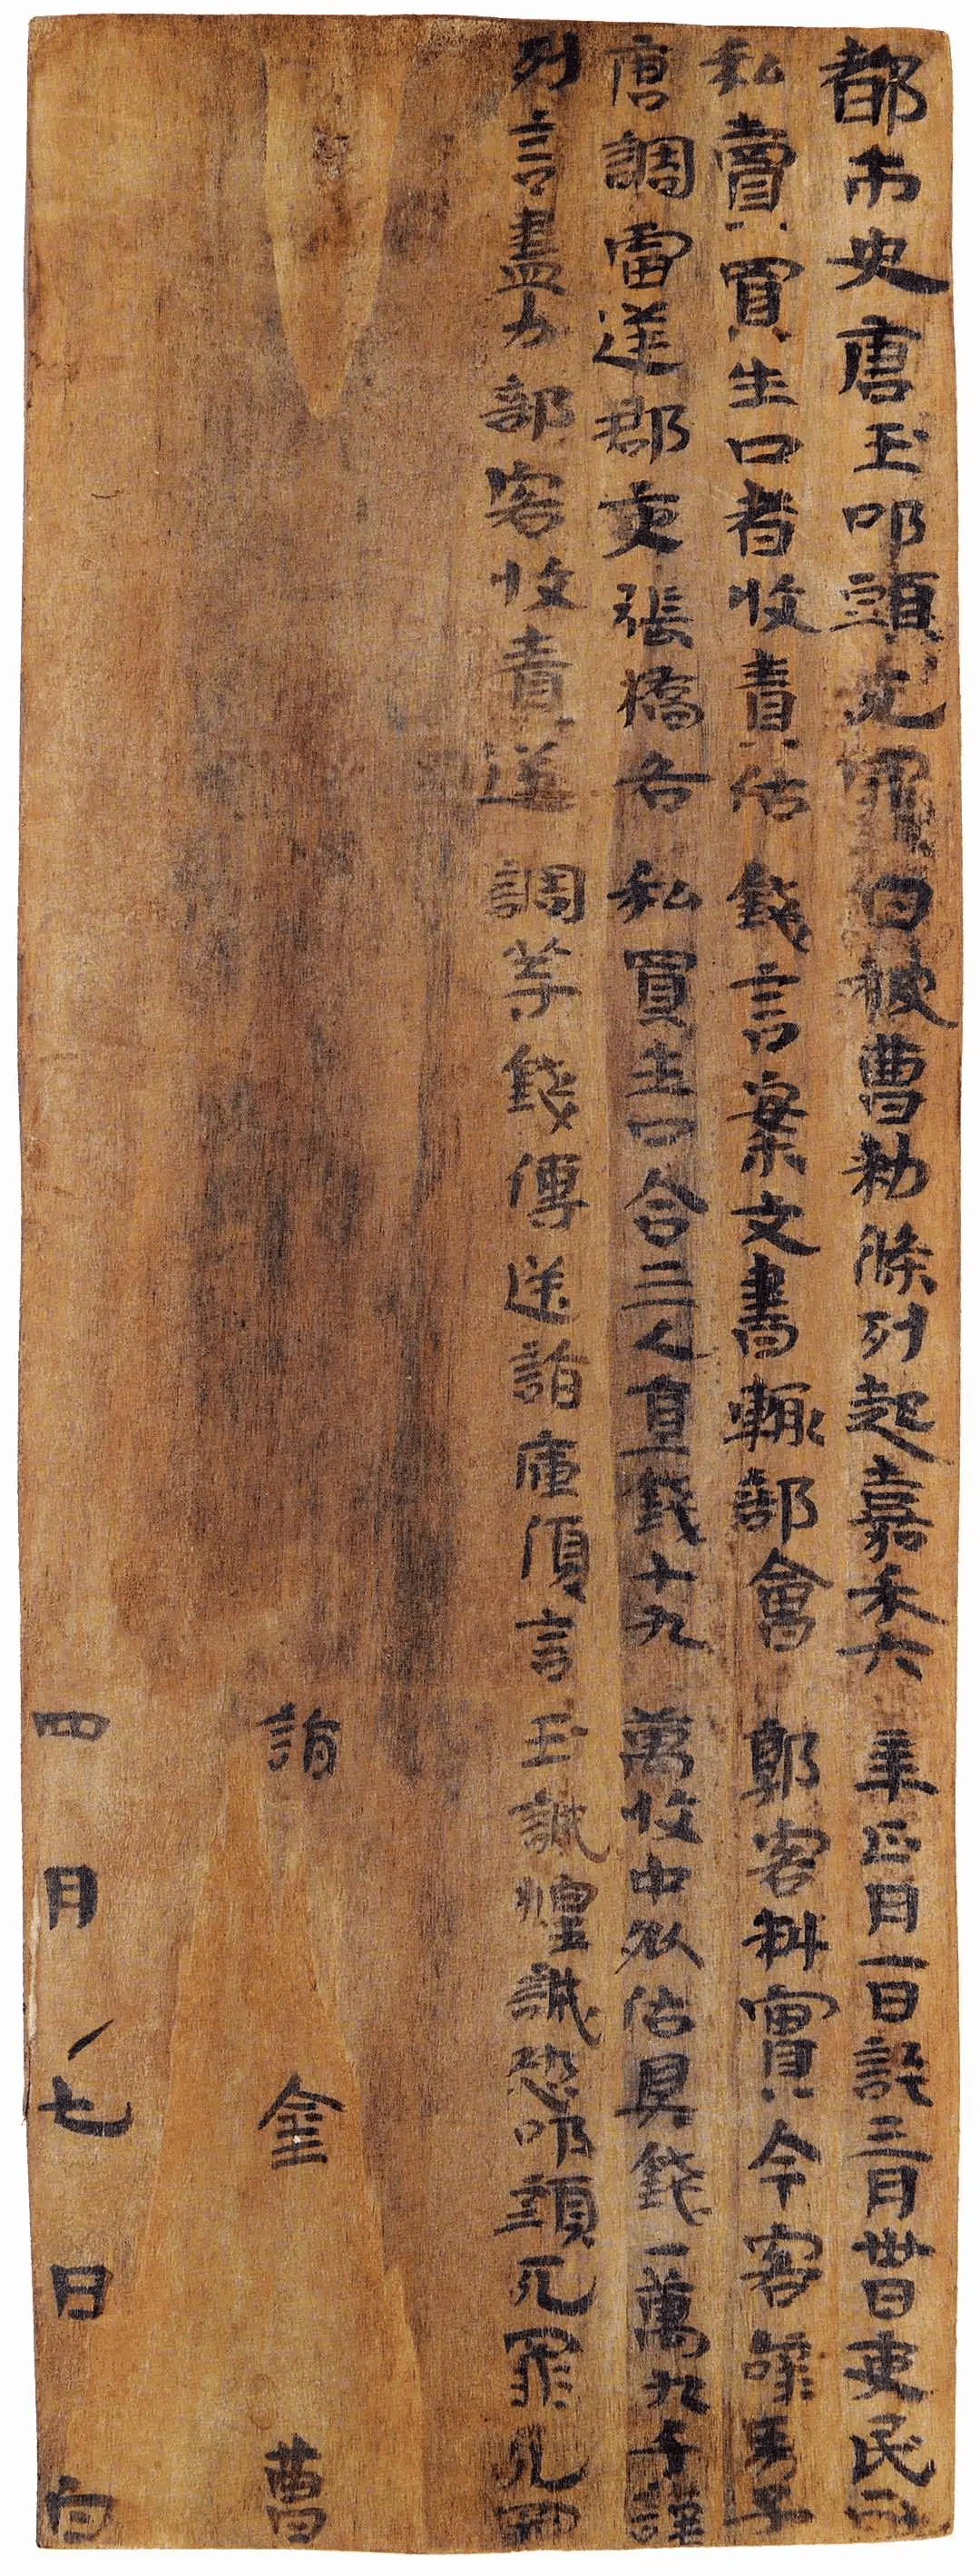 都市史唐玉叩頭死罪白被曹勑條列起嘉禾六年正月一日訖三月卅日吏民
私賣買生口者收責估錢言案文書輒部會郭客料實今客辭男子
唐調雷逆郡吏張橋各私買生口合三人直錢十九萬收中外估具錢一萬九千謹
列言盡力部客收責逆調等錢傳送詣庫復言玉誠惶誠恐叩頭死罪死罪
詣金曹
四月七日白